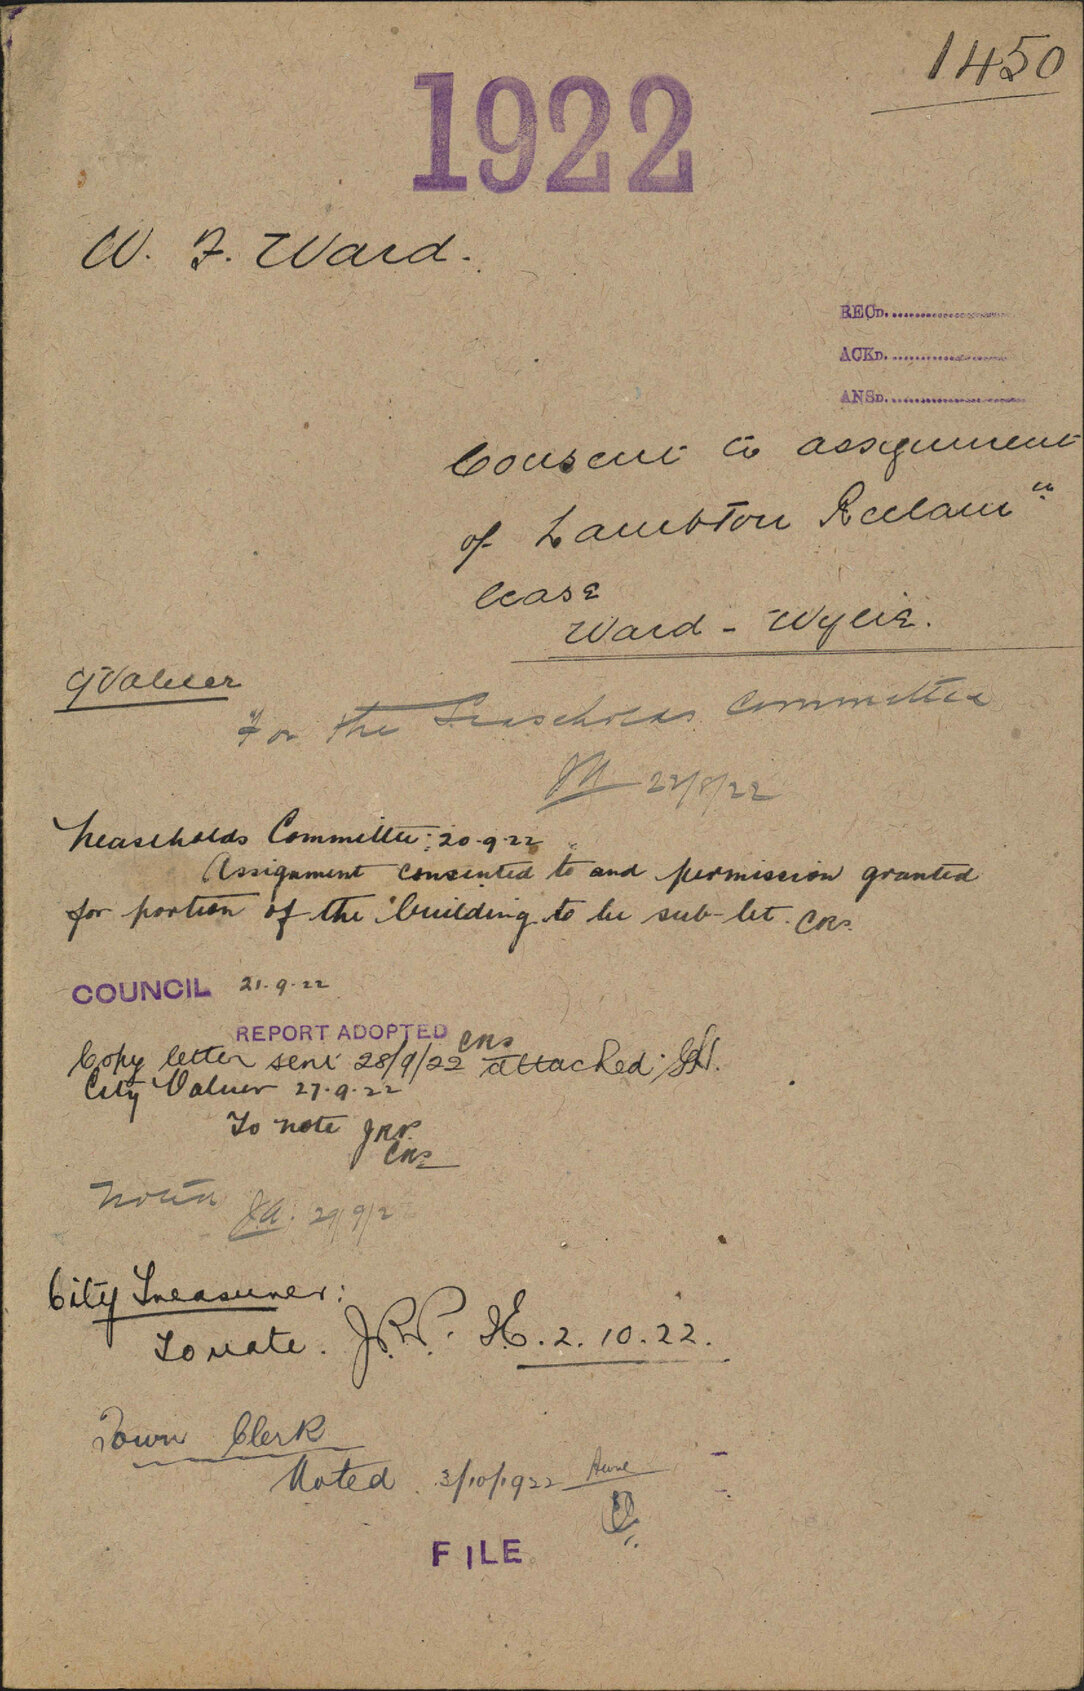 1450
1922
W. F. Ward.
RECD.
ACKD.
ANSD.
Consent to assignment
of Lambton Reclam"
lease
Ward - Wylie.
Valuer
For the Leaseholds Committee
22/8/22
Leaseholds Committee: 20.9.22
Assignment consented to and permission granted
for portion of the building to be sub-let. CRS.
COUNCIL 21.9.22
REPORT ADOPTED
CRS
Copy letter sent 28/9/22 attached
City Valuer 27.9.22
To note JRP.
CRS
Noted J.A. 29/9/22
City Treasurer:
To note. J.R.P. 2.10.22.
Town Clerk
Noted 3/10/1922
FILE